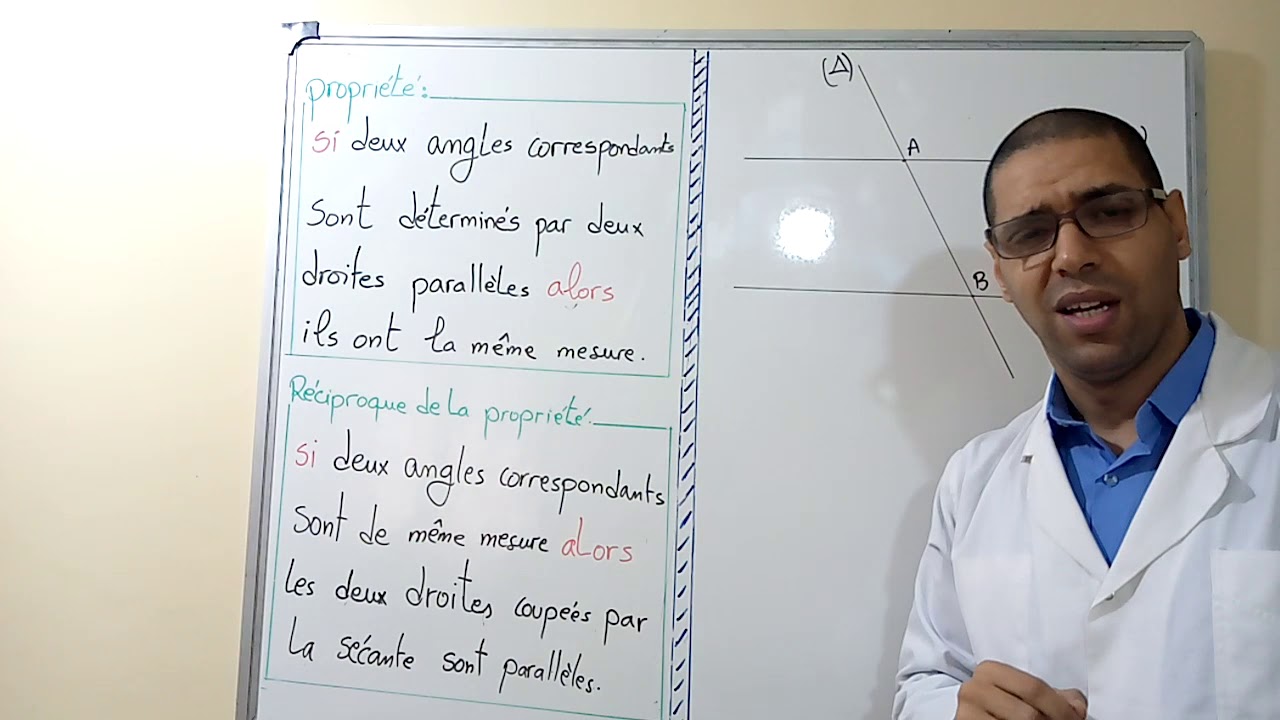 Propriété:
Si deux angles correspondants
Sont déterminés par deux
droites parallèles alors
ils ont la même mesure.
Réciproque de la propriété:
Si deux angles correspondants
Sont de même mesure alors
les deux droites coupées par
la sécante sont parallèles.
(Δ)
A
B